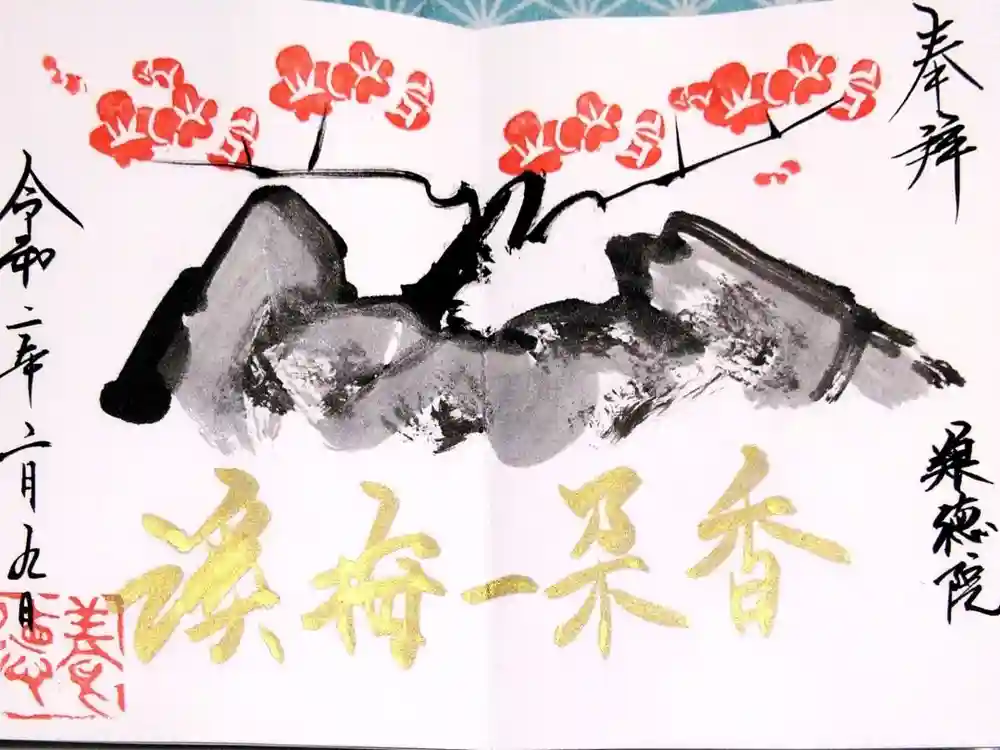 奉拝
養徳院
渓梅一朶香
令和二年二月九日
養徳